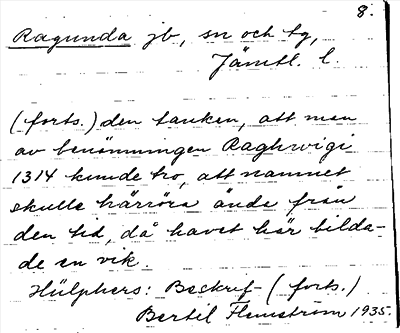 8.
Ragunda jb, sn och tg,
Jämtl. l.
(forts.) den tanken, att man
av benämningen Raghwigi
1314 kunde tro, att namnet
skulle härröra ända från
den tid, då havet här bilda-
de en vik.
Hülphers: Beskrif- (forts.)
Bertil Flemström 1935.